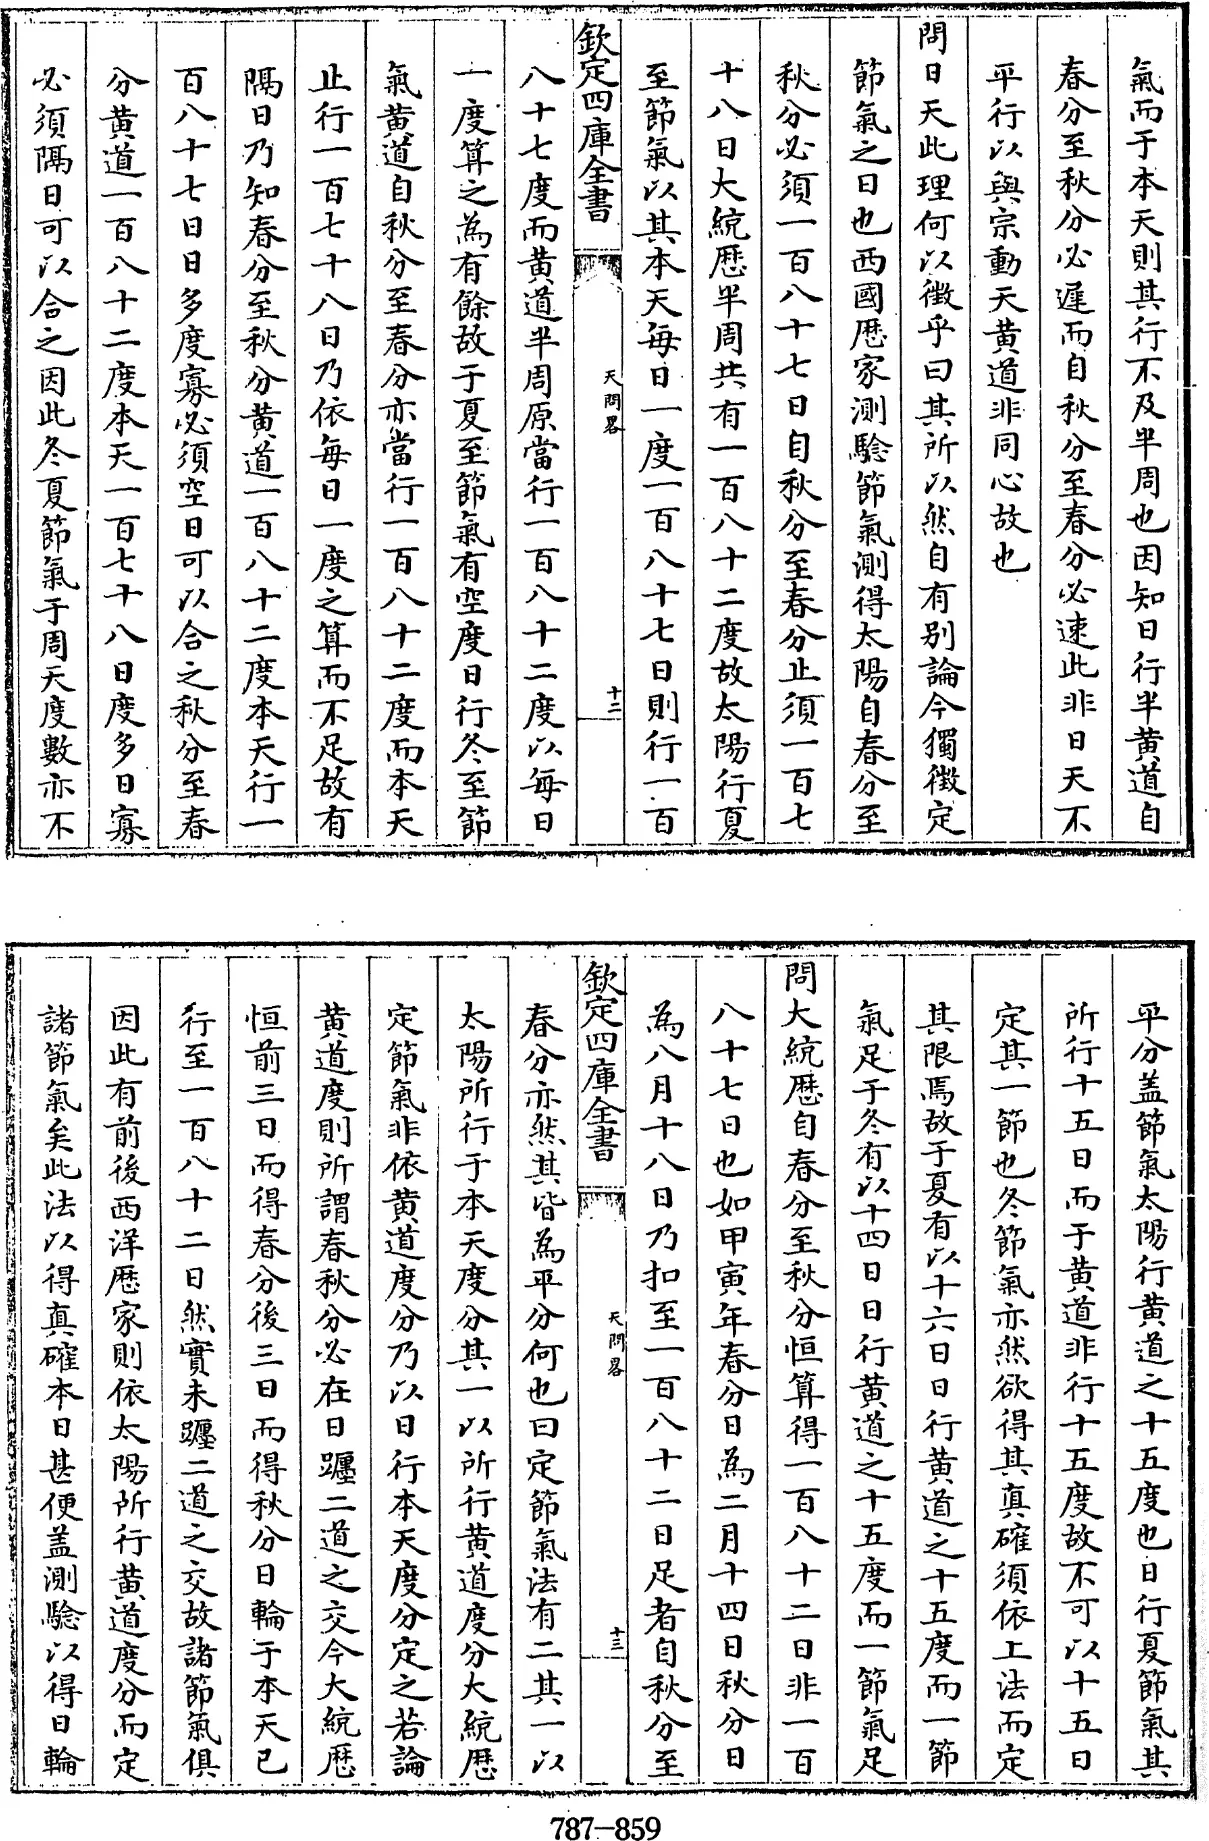 氣而于本天則其行不及半周也因知日行半黄道自
春分至秋分必遲而自秋分至春分必速此非日天不
平行以與宗動天黄道非同心故也
問日天此理何以徴乎曰其所以然自有别論今獨徴定
節氣之日也西國厯家測驗節氣測得太陽自春分至
秋分必須一百八十七日自秋分至春分止須一百七
十八日大統厯半周共有一百八十二度故太陽行夏
至節氣以其本天每日一度一百八十七日則行一百
欽定四庫全書
天問畧
十二
八十七度而黄道半周原當行一百八十二度以每日
一度算之為有餘故于夏至節氣有空度日行冬至節
氣黄道自秋分至春分亦當行一百八十二度而本天
止行一百七十八日乃依每日一度之算而不足故有
隔日乃知春分至秋分黄道一百八十二度本天行一
百八十七日日多度寡必須空日可以合之秋分至春
分黄道一百八十二度本天一百七十八日度多日寡
必須隔日可以合之因此冬夏節氣于周天度數亦不
平分盖節氣太陽行黄道之十五度也日行夏節氣其
所行十五日而于黄道非行十五度故不可以十五日
定其一節也冬節氣亦然欲得其真確須依上法而定
其限焉故于夏有以十六日日行黄道之十五度而一節
氣足于冬有以十四日日行黄道之十五度而一節氣足
問大統厯自春分至秋分恒算得一百八十二日非一百
八十七日也如甲寅年春分日為二月十四日秋分日
為八月十八日乃扣至一百八十二日足者自秋分至
欽定四庫全書
天問畧
十三
春分亦然其皆為平分何也曰定節氣法有二其一以
太陽所行于本天度分其一以所行黄道度分大統厯
定節氣非依黄道度分乃以日行本天度分定之若論
黄道度則所謂春秋分必在日躔二道之交今大統厯
恒前三日而得春分後三日而得秋分日輪于本天已
行至一百八十二日然實未躔二道之交故諸節氣俱
因此有前後西洋厯家則依太陽所行黄道度分而定
諸節氣矣此法以得真確本日甚便盖測驗以得日輪
787-859